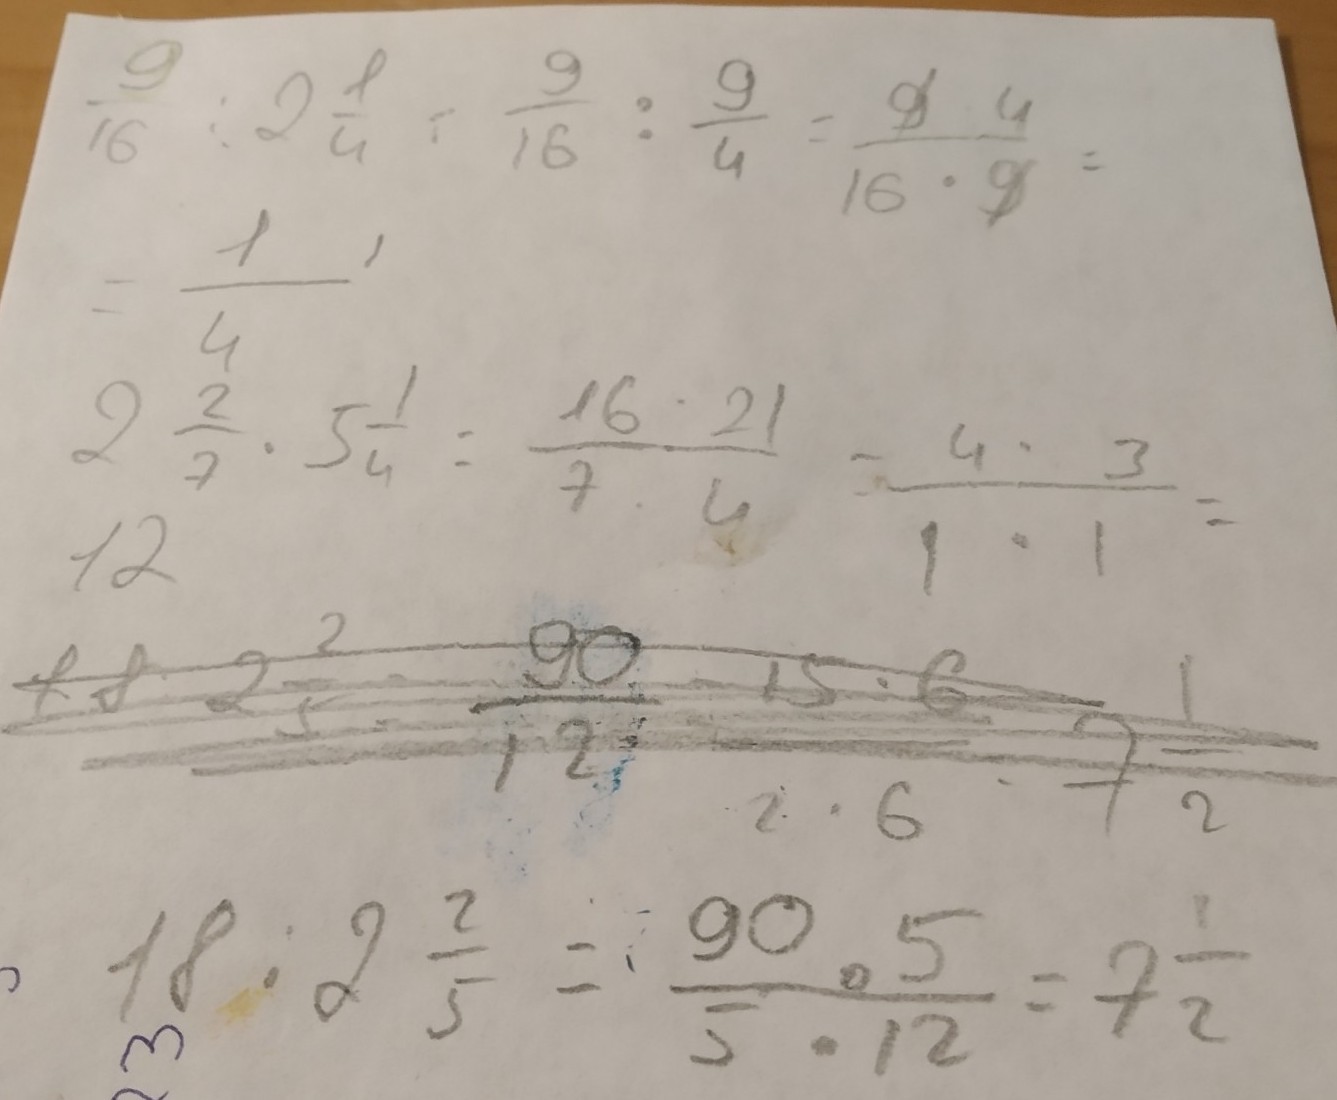 9/16 : 2 1/4 = 9/16 : 9/4 = 9 4 / 16 · 9 =
= 1/4
2 2/7 · 5 1/4 = 16 · 21 / 7 · 4 = 4 · 3 / 1 · 1 =
12
18 2 2/5 = 90/12 = 15 · 6 / 2 · 6 = 7 1/2
18 : 2 2/5 = 90 · 5 / 5 · 12 = 7 1/2
23